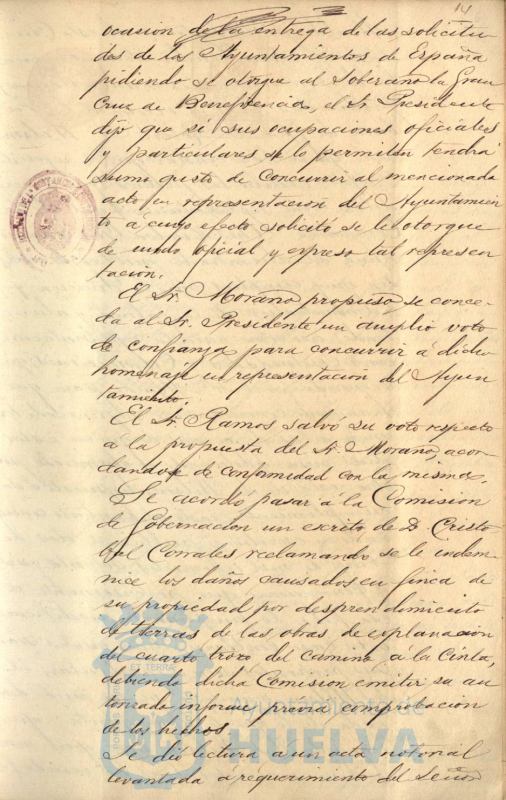 14
ocasion de la entrega de las solicitu
des de los Ayuntamientos de España
pidiendo se otorgue al Soberano la Gran
Cruz de Beneficencia, el Sr. Presidente
dijo que si sus ocupaciones oficiales
y particulares se lo permitan tendrá
sumo gusto de concurrir al mencionado
acto en representación del Ayuntamien
to á cuyo efecto solicitó se le otorgue
de modo oficial y expreso tal represen
tación.
El Sr. Moraño propuso, se conce
da al Sr. Presidente un amplio voto
de confianza para concurrir á dicho
homenaje en representación del Ayun
tamiento.
El Sr. Ramos salvó su voto respecto
á la propuesta del Sr. Moraño, acor
dandose de conformidad con la misma.
Se acordó pasar á la Comision
de Gobernacion un escrito de D. Cristo
bal Corrales reclamando se le indem
nice los daños causados en finca de
su propiedad por desprendimiento
de tierras de las obras de explanacion
del cuarto trozo del camino á la Cinta,
debiendo dicha Comision emitir su au
torizado informe previa comprobación
de los hechos.
Se dió lectura a un acta notarial
levantada á requerimiento del Señor
Ayuntamiento de
HUELVA